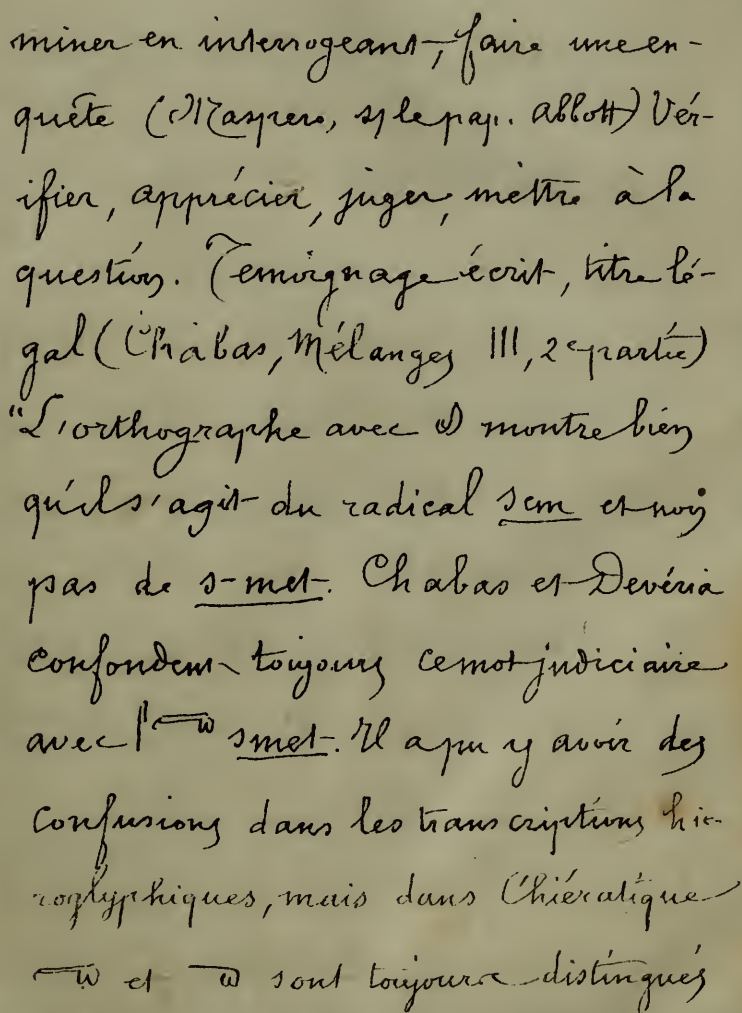 miner en interrogeant, faire une en-
quête (Maspero, sr le pap. Abbott) Vér-
ifier, apprécier, juger, mettre à la
question. Temoignage écrit, titre lé-
gal (Chabas, Mélanges III, 2e partie)
"L'orthographe avec montre bien
qu'il s'agit du radical sem et non
pas de s-met. Chabas et Devéria
confondent toujours ce mot judiciaire
avec smet. Il a pu y avoir des
confusions dans les transcriptions hié-
roglyphiques, mais dans l'hiératique
et sont toujours distingués